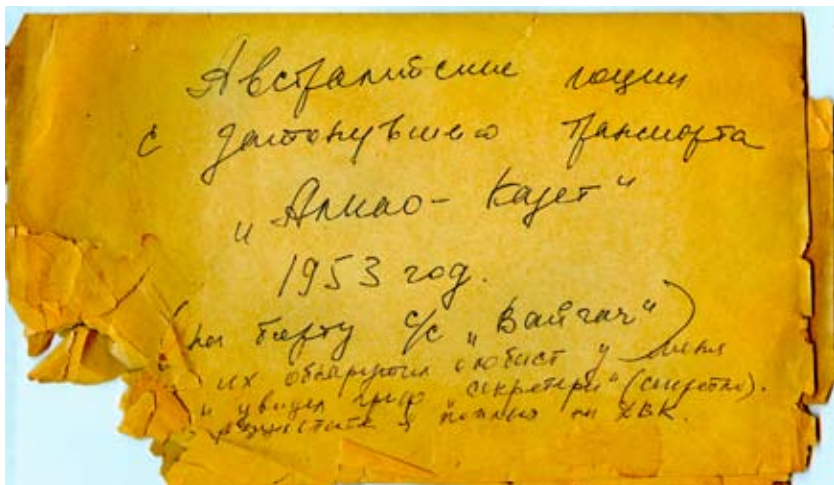 Австралийские лоции
с затонувшего транспорта
„Алкао - Кадет“
1953 год.
(на борту с/с „Вайгач“)
их обнаружил особист у меня
и увидел гриф „секретери“ (секретно).
я попал на КВК.